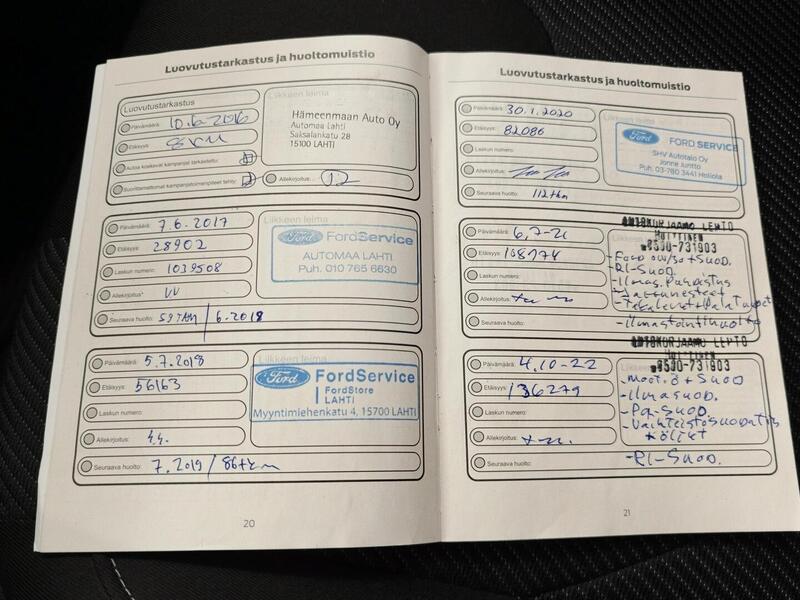 Luovutustarkastus ja huoltomuistio
Luovutustarkastus
Päivämäärä: 10.6.2016
Etäisyys:
Autoa koskevat kampanjat tarkastettu:
Suorittamattomat kampanjatoimenpiteet tehty:
Liikkeen leima
Hämeenmaan Auto Oy
Automaa Lahti
Saksalankatu 28
15100 LAHTI
Allekirjoitus:
Päivämäärä: 7.6.2017
Etäisyys: 28902
Laskun numero: 1039508
Allekirjoitus:
Seuraava huolto: 59TKM / 6.2018
Liikkeen leima
Ford FordService
AUTOMAA LAHTI
Puh. 010 765 6630
Päivämäärä: 5.7.2018
Etäisyys: 56163
Laskun numero:
Allekirjoitus:
Seuraava huolto: 7.2019 / 86tkm
Liikkeen leima
Ford FordService
FordStore
LAHTI
Myyntimiehenkatu 4, 15700 LAHTI
20
Luovutustarkastus ja huoltomuistio
Päivämäärä: 30.1.2020
Etäisyys: 82086
Laskun numero:
Allekirjoitus:
Seuraava huolto: 112tkm
Liikkeen leima
Ford FORD SERVICE
SHV Autotalo Oy
Jonne Juntto
Puh. 03-780 3441 Hollola
Päivämäärä: 6,7-21
Etäisyys: 108774
Laskun numero:
Allekirjoitus:
Seuraava huolto:
AUTOKORJAAMO LEHTO
HUITTINEN
0500-731903
-Ford 0w/30+Suod.
-RI-Suod.
-Ilmas. Puhdistus
-Jarrunesteet
-Takalevyt+Palat
-Ilmastointihuolto
Päivämäärä: 4.10-22
Etäisyys: 136279
Laskun numero:
Allekirjoitus:
Seuraava huolto:
AUTOKORJAAMO LEHTO
HUITTINEN
0500-731903
-Moot.ö+Suod
-Ilmasuod.
-PA-Suod.
-Vaihteistosuodatin
+öljyt
-RI-Suod.
21